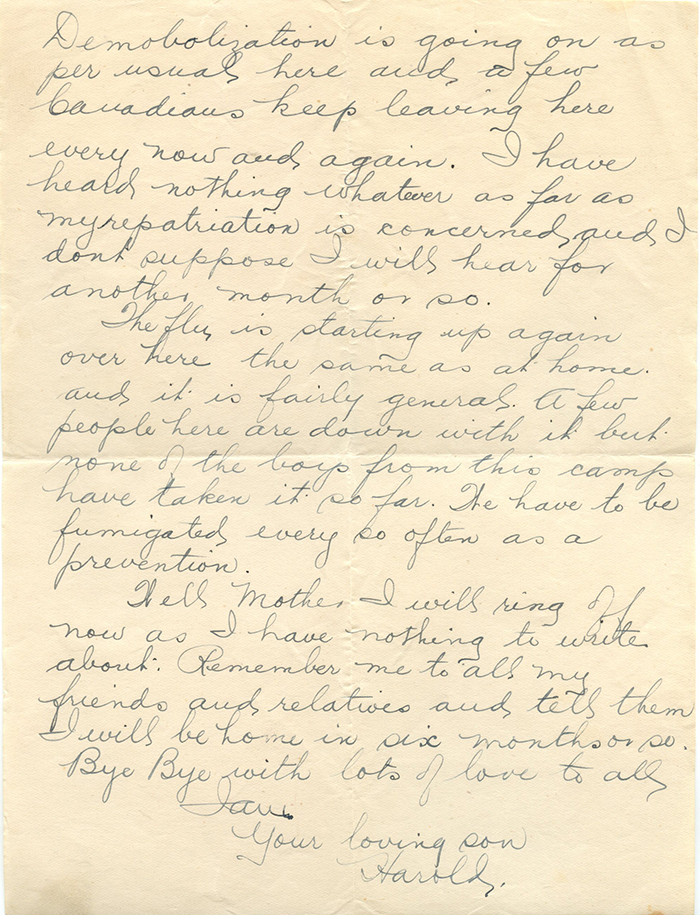 Demobolization is going on as
per usual here and a few
Canadians keep leaving here
every now and again. I have
heard nothing whatever as far as
my repatriation is concerned, and I
dont suppose I will hear for
another month or so.
The flu is starting up again
over here the same as at home.
and it is fairly general. A few
people here are down with it but
none of the boys from this camp
have taken it so far. We have to be
fumigated every so often as a
prevention.
Well Mother I will ring off
now as I have nothing to write
about. Remember me to all my
friends and relatives and tell them
I will be home in six months or so.
Bye Bye with lots of love to all
I am
Your loving son
Harold.